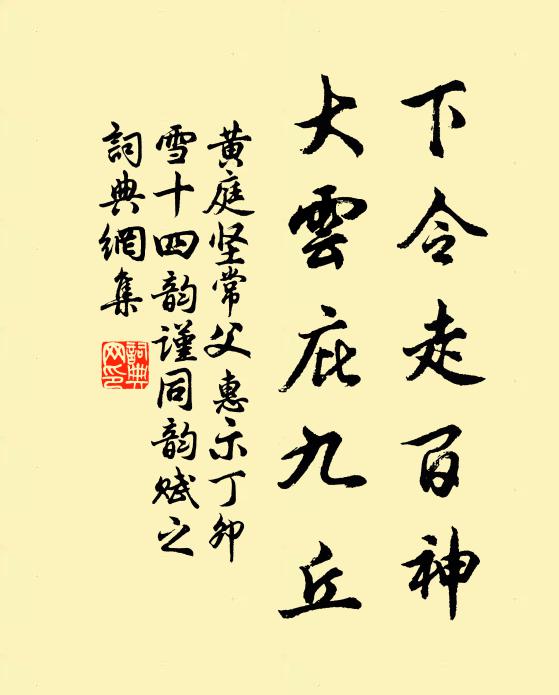 下令走百神
大雲庇九丘
黄庭坚常父惠示丁卯
雪十四韵謹同韵赋之
詞典網集
詞典網印